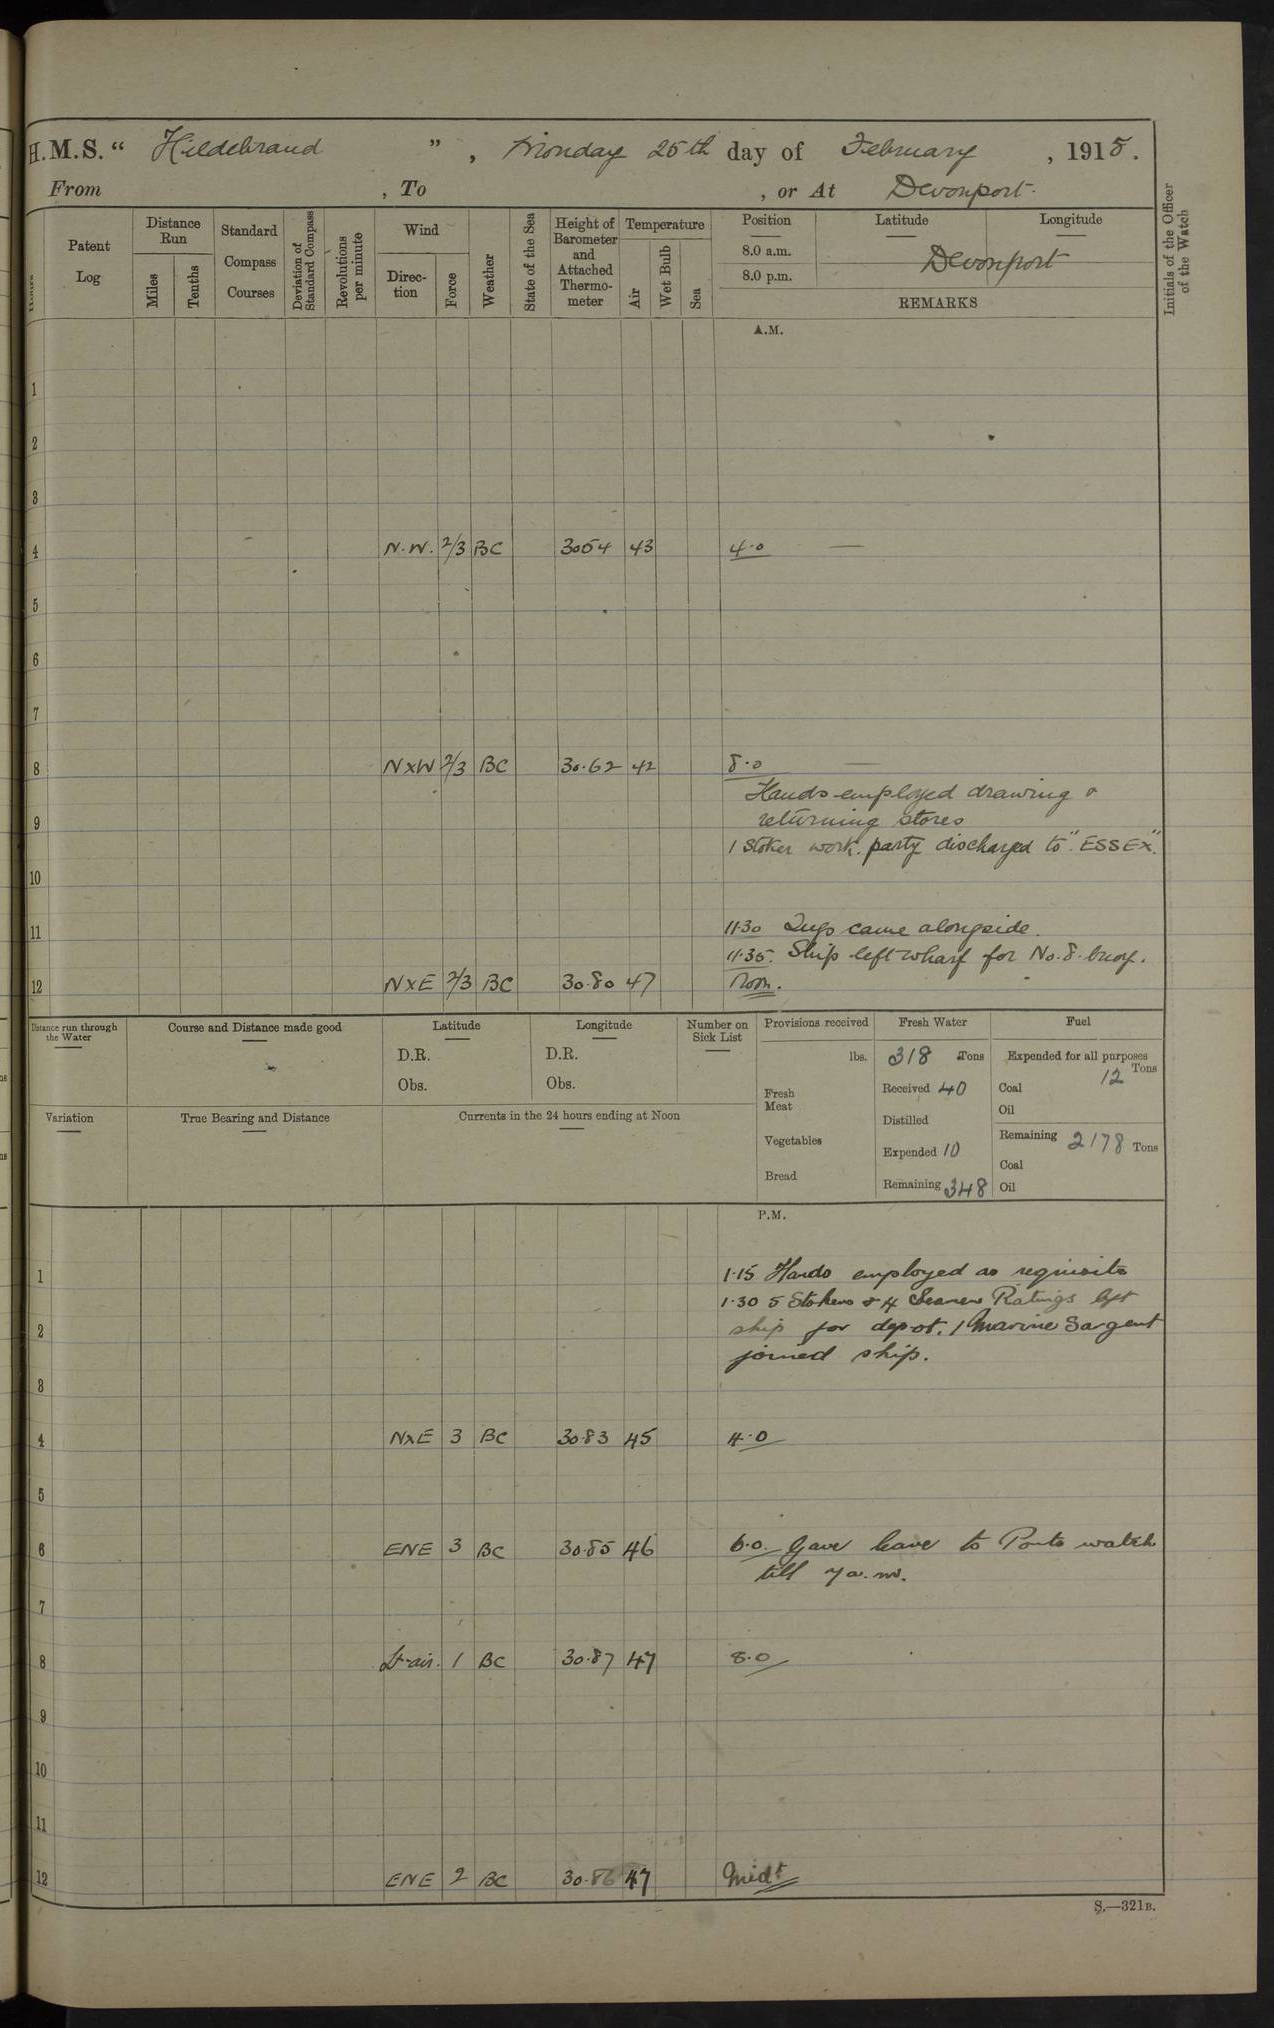 H.M.S. " Hildebrand ", Monday 25th day of February, 1918.
From , To , or At Devonport.
Hours
Patent Log
Distance Run
Miles
Tenths
Standard Compass Courses
Deviation of Standard Compass
Revolutions per minute
Wind
Direction
Force
Weather
State of the Sea
Height of Barometer and Attached Thermometer
Temperature
Air
Wet Bulb
Sea
Position Latitude Longitude
8.0 a.m.
8.0 p.m.
Devonport
REMARKS
Initials of the Officer of the Watch
A.M.
1
2
3
4 N.W. 2/3 BC 3054 43 4.0 —
5
6
7
8 NXW 2/3 BC 30.62 42 8.0 —
Hands employed drawing &
9 returning stores
1 Stoker work. party discharged to "ESSEX".
10
11 11.30 Tugs came alongside.
11.35. Ship left wharf for No. 8. buoy.
12 NXE 2/3 BC 30.80 47 Noon.
Distance run through the Water
Course and Distance made good
Latitude
D.R.
Obs.
Longitude
D.R.
Obs.
Number on Sick List
Provisions received
lbs.
Fresh Meat
Vegetables
Bread
Fresh Water
318 Tons
Received 40
Distilled
Expended 10
Remaining 348
Fuel
Expended for all purposes
12 Tons
Coal
Oil
Remaining 2178 Tons
Coal
Oil
Variation
True Bearing and Distance
Currents in the 24 hours ending at Noon
P.M.
1 1.15 Hands employed as requisite
1.30 5 Stokers & 4 Seamen Ratings left
2 ship for depot. 1 Marine Sargent
joined ship.
3
4 NXE 3 BC 30.83 45 4.0
5
6 ENE 3 BC 30.85 46 6.0. Gave leave to Ports watch
till 7 a.m.
7
8 Lt air. 1 BC 30.87 47 8.0
9
10
11
12 ENE 2 BC 30.86 47 Midt
S.—321B.